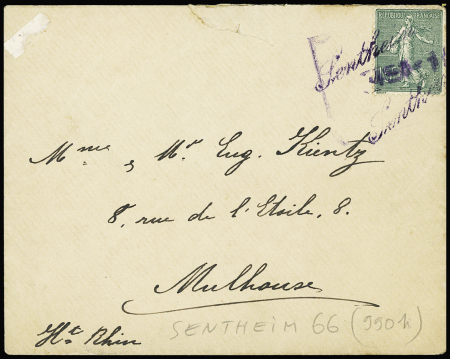 RÉPUBLIQUE FRANÇAISE
Sentheim
Sentheim
Mme & Mr Eug. Kientz
8, rue de l'Etoile, 8.
Mulhouse
Ht Rhin
SENTHEIM 66 (990h)